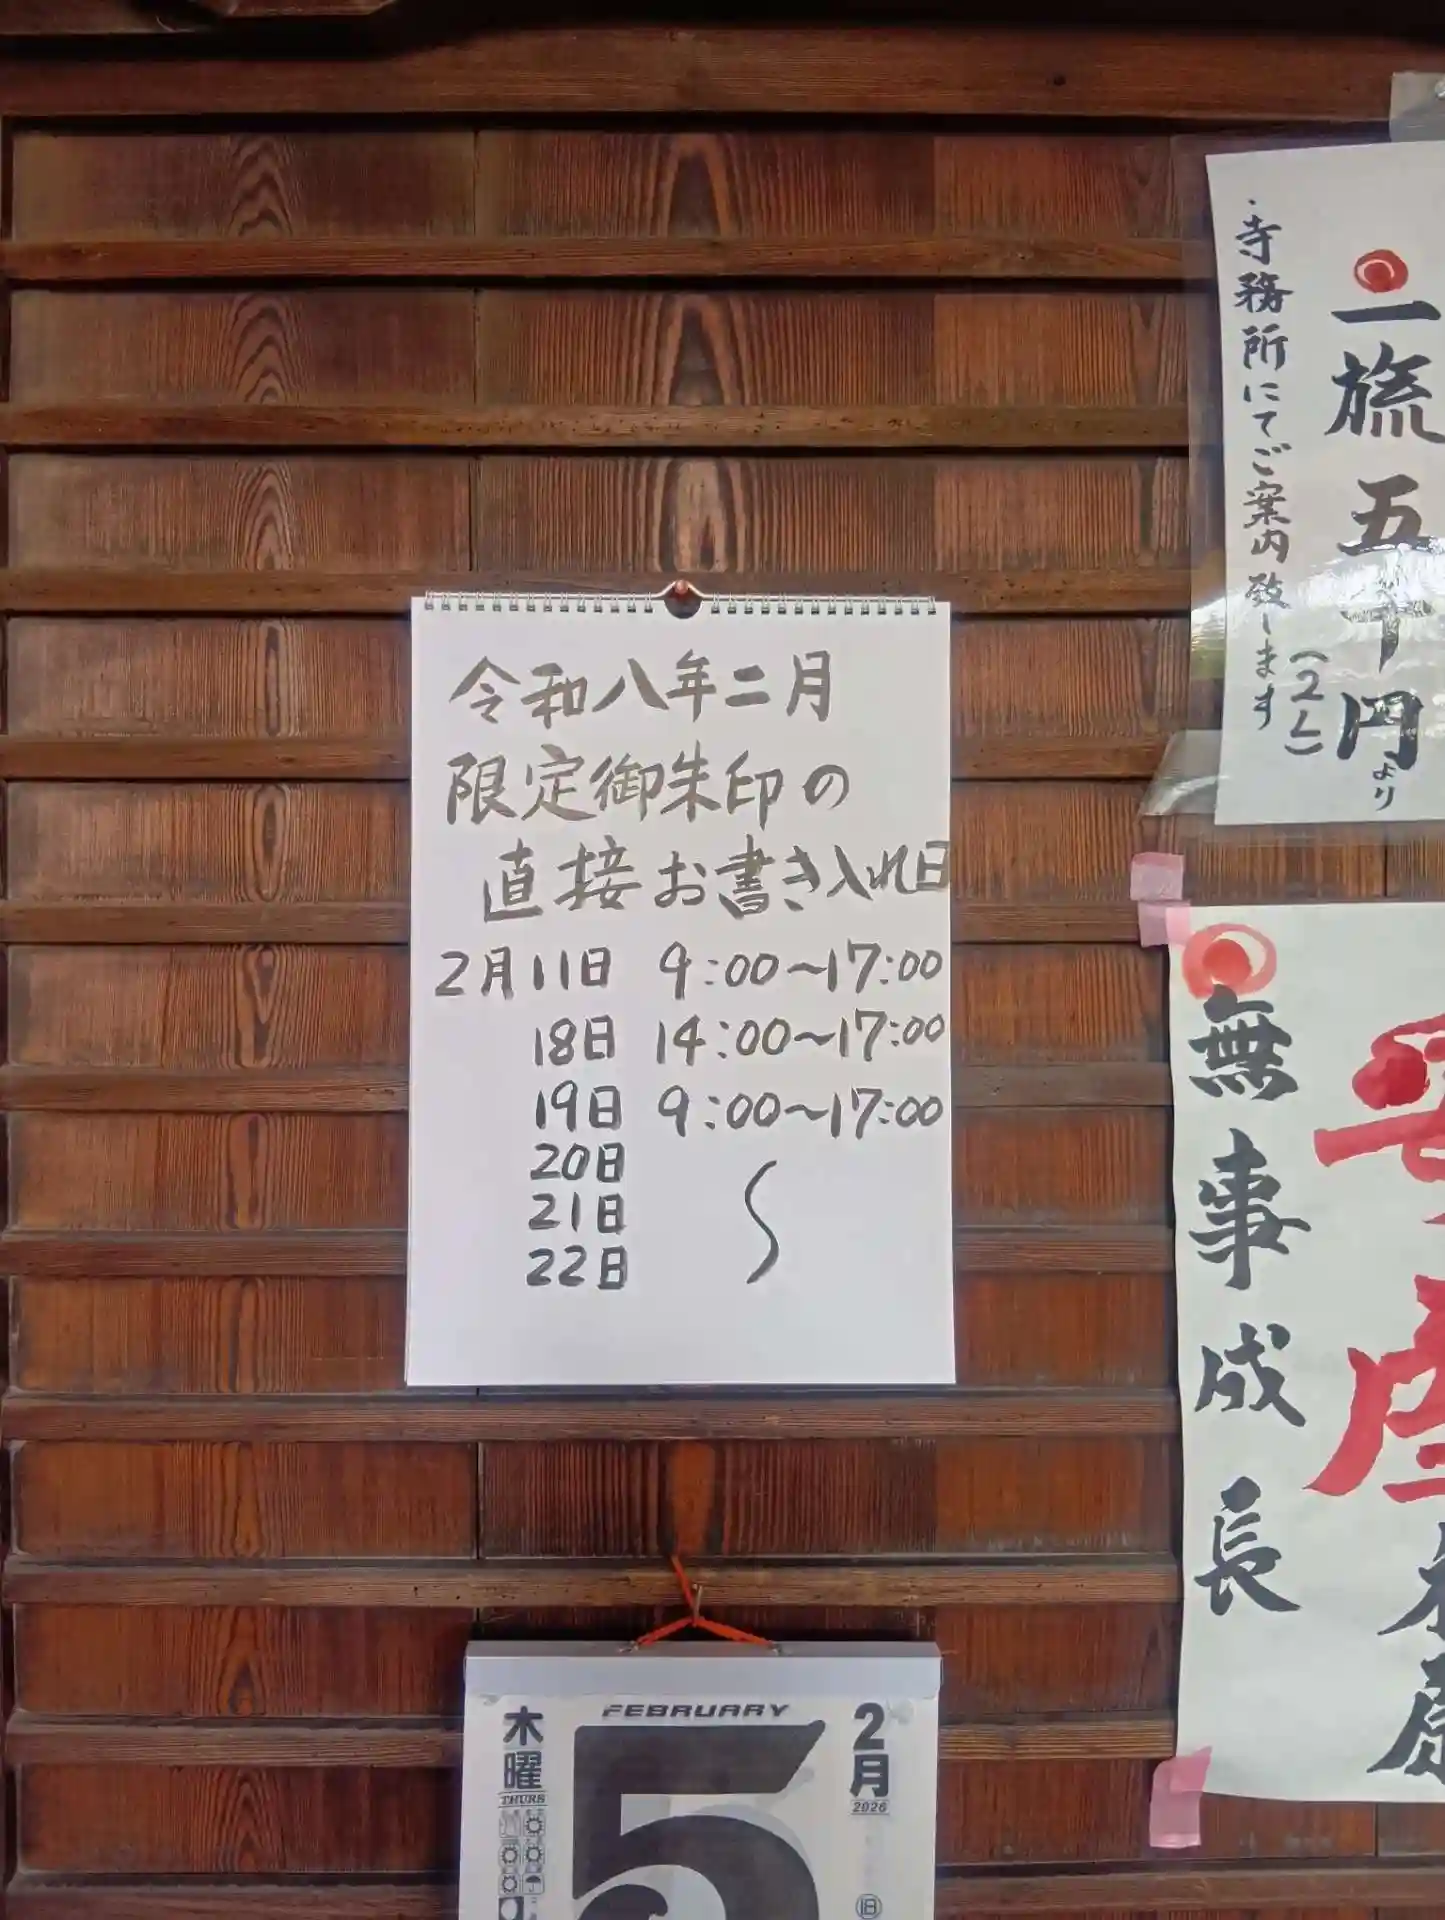 令和八年二月
限定御朱印の
直接お書き入れ日
2月11日 9:00～17:00
18日 14:00～17:00
19日 9:00～17:00
20日
21日
22日
〜
一旒五十円より
寺務所にてご案内致します
無事成長
FEBRUARY
木曜
THURS
5
2月
2026
旧